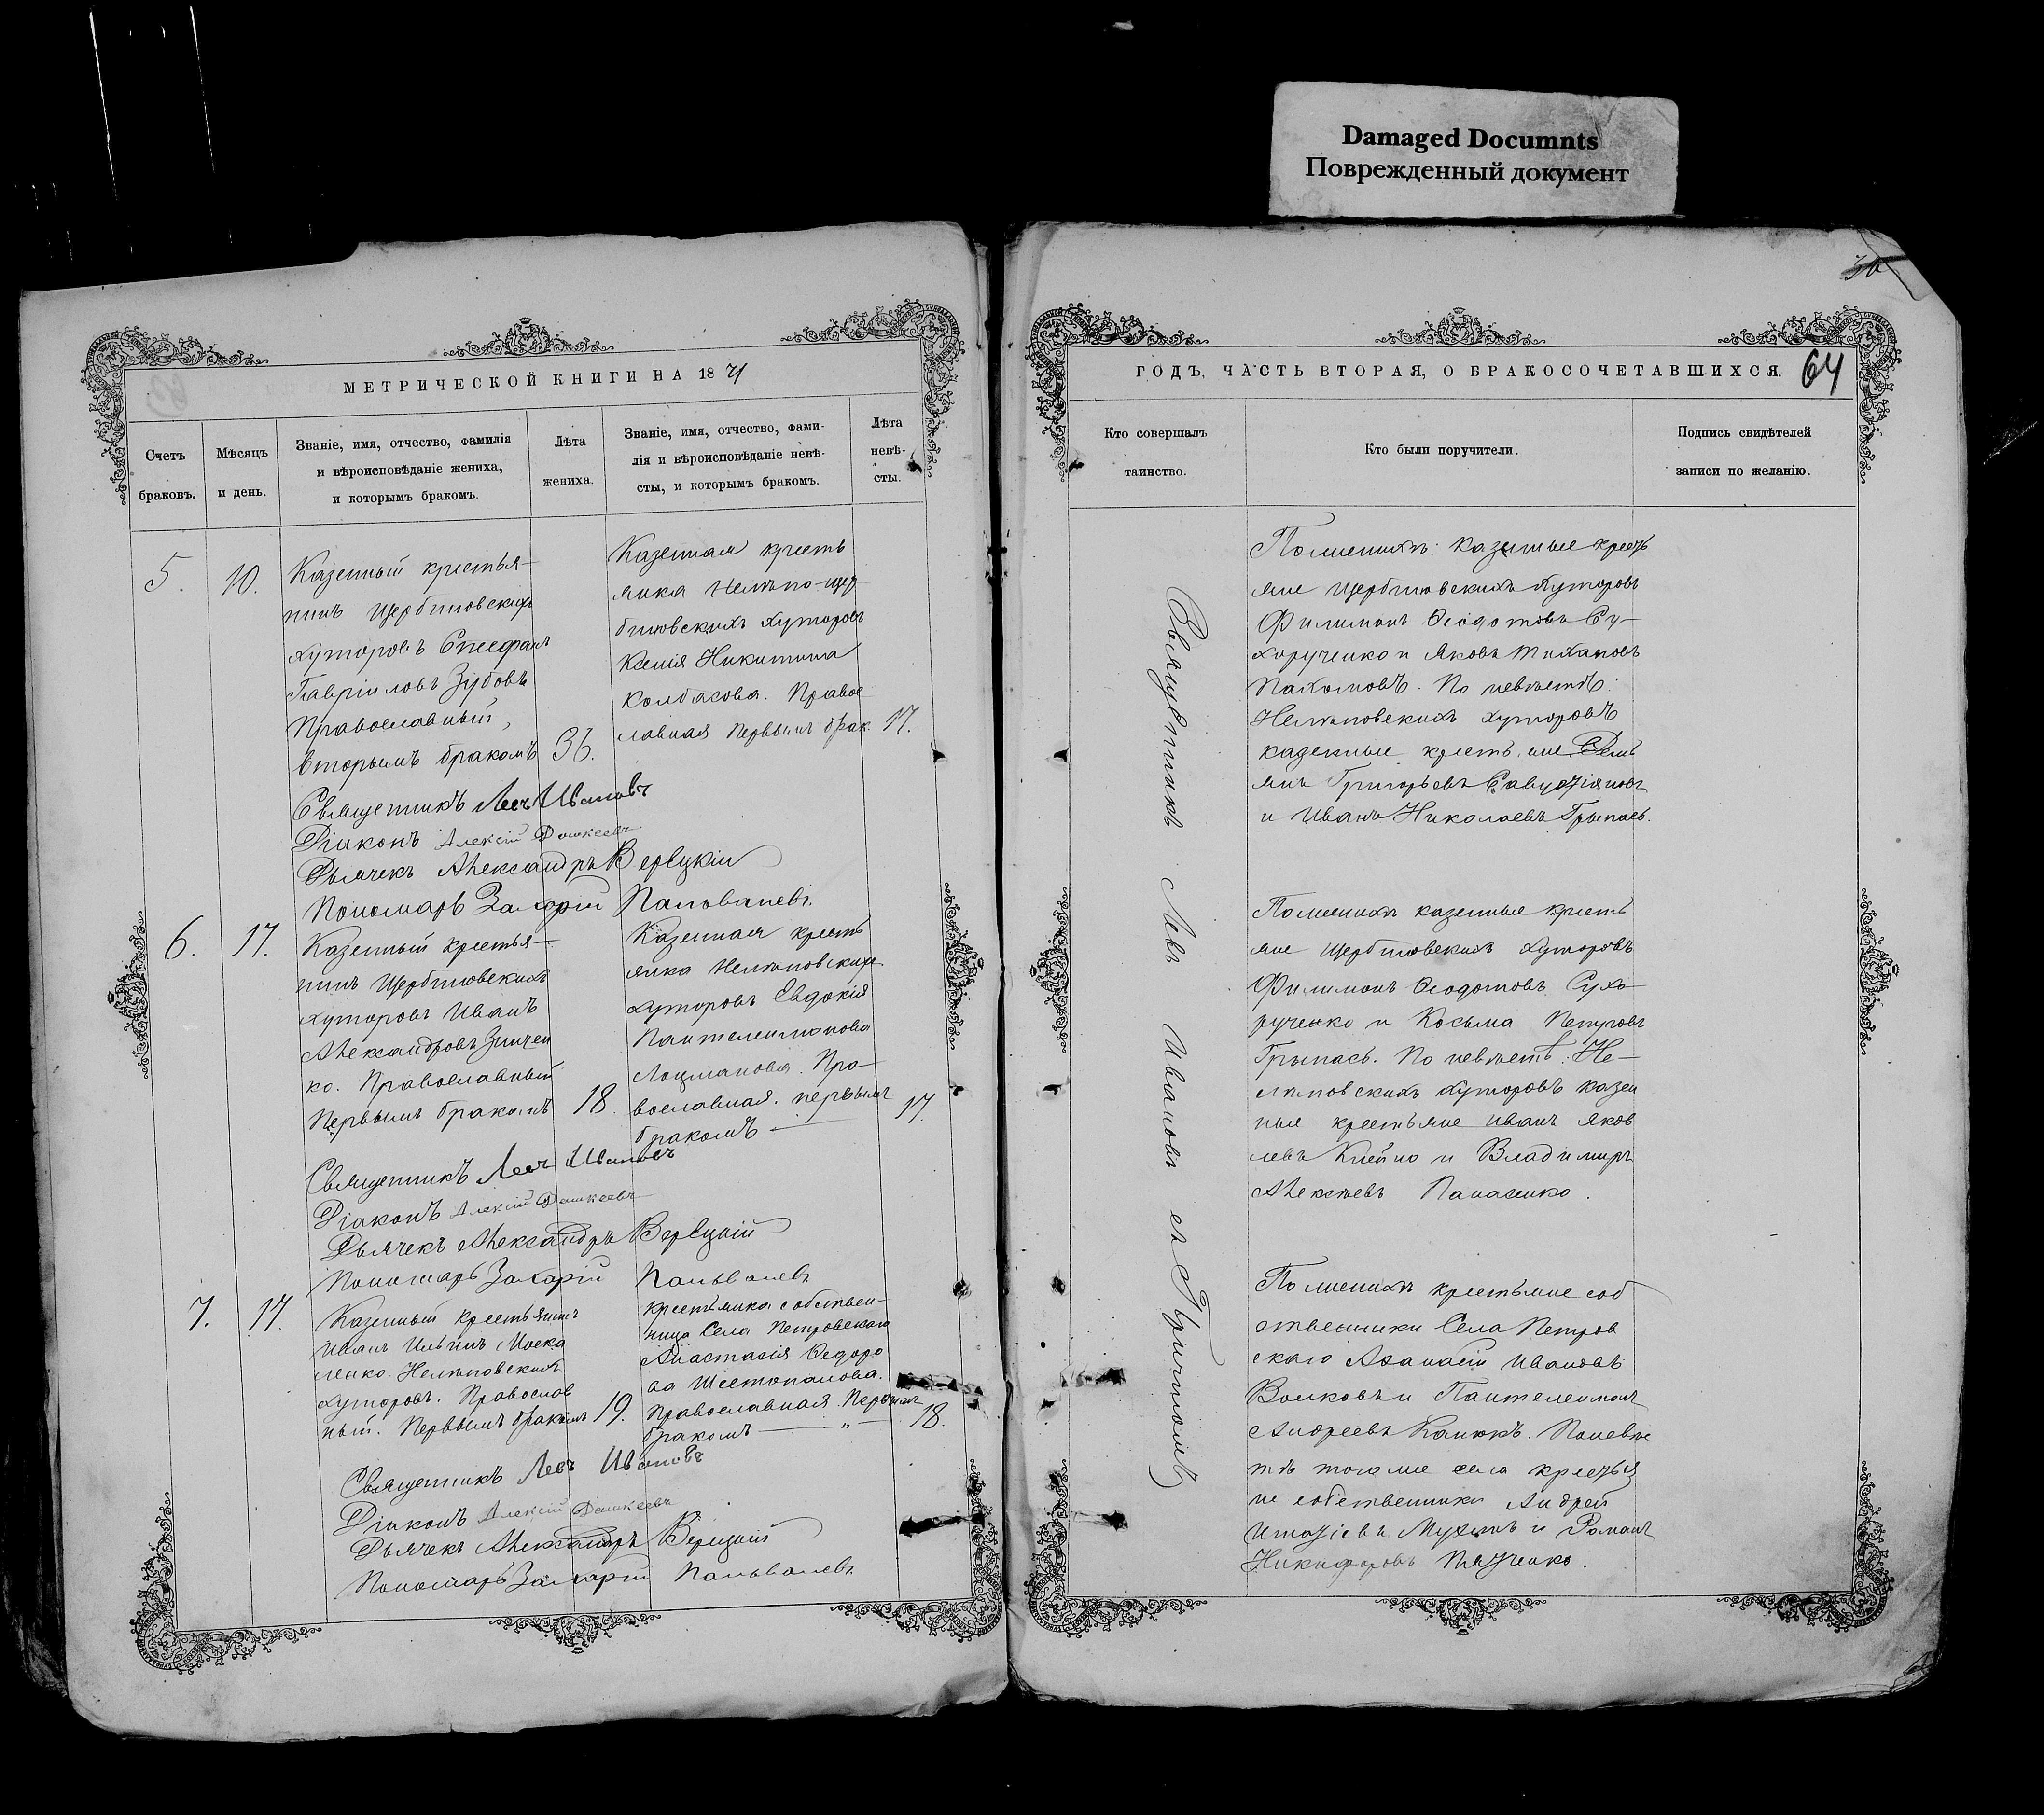 Damaged Documnts
Поврежденный документ
МЕТРИЧЕСКОЙ КНИГИ НА 1871
Счетъ браковъ.
Мѣсяцъ и день.
Званіе, имя, отчество, фамилія
и вѣроисповѣданіе жениха,
и которымъ бракомъ.
Лѣта
жениха.
Званіе, имя, отчество, фами-
лія и вѣроисповѣданіе невѣ-
сты, и которымъ бракомъ.
Лѣта
невѣ-
сты.
5.
10.
Казенный крестья-
нинъ Щербиновскихъ
хуторовъ
Гавріиловъ Зубовъ
Православный,
вторымъ бракомъ
36.
Казенная кресть
янка Нелѣпо-щер
биновскихъ хуторовъ
Ксенія Никитина
Колбасова. Правос
лавная первымъ брак.
17.
Священникъ Левъ Ивановъ
Діаконъ Алексій Дашкеевъ
Дьячекъ Александръ Верецкій
Пономарь Захарій
6.
17.
Казенный крестья-
нинъ Щербиновскихъ
хуторовъ Иванъ
Александровъ Зинчен
ко. Православный
Первымъ бракомъ
18.
Казенная кресть
янка Нелѣповскихъ
хуторовъ Евдокія
Пантелеимонова
Лоцманова. Пра
вославная. первымъ
бракомъ —
17.
Священникъ Левъ Ивановъ
Діаконъ Алексій Дашкеевъ
Дьячекъ Александръ Верецкій
Пономарь Захарій
7.
17.
Казенный крестьянинъ
Иванъ Ильинъ Моска
ленко Нелѣповскихъ
хуторовъ. Православ
ный. Первымъ бракомъ
19.
Крестьянка собствен-
ница Села Петровскаго
Анастасія Ѳедоро
ва Шестопалова.
Православная. Первымъ
бракомъ — „ —
18.
Священникъ Левъ Ивановъ
Діаконъ Алексій Дашкеевъ
Дьячекъ Александръ Верецкій
Пономарь Захарій
36
64
ГОДЪ, ЧАСТЬ ВТОРАЯ, О БРАКОСОЧЕТАВШИХСЯ.
Кто совершалъ
таинство.
Кто были поручители.
Подпись свидѣтелей
записи по желанію.
Священникъ Левъ Ивановъ съ Причтомъ
По женихѣ: казенные кресть
яне Щербиновскихъ хуторовъ
Филимонъ Ѳеодотовъ Су-
хорученко и Яковъ
Пахомовъ. По невѣстѣ:
Нелѣповскихъ хуторовъ
казенные крестьяне
Григорьевъ
и Иванъ Николаевъ
По женихѣ казенные кресть
яне Щербиновскихъ хуторовъ
Филимонъ Ѳеодотовъ Сухо-
рученко и Косьма Петровъ
По невѣстѣ: Не-
лѣповскихъ хуторовъ казен
ныя крестьяне Иванъ Яков
левъ и Владимиръ
Алексѣевъ Панасенко.
По женихѣ крестьяне соб
ственники Села Петров
скаго Аѳанасій Ивановъ
Волковъ и Пантелеимонъ
Андреевъ По невѣс
тѣ того же села крестья
не собственники Андрей
и Романъ
Никифоровъ